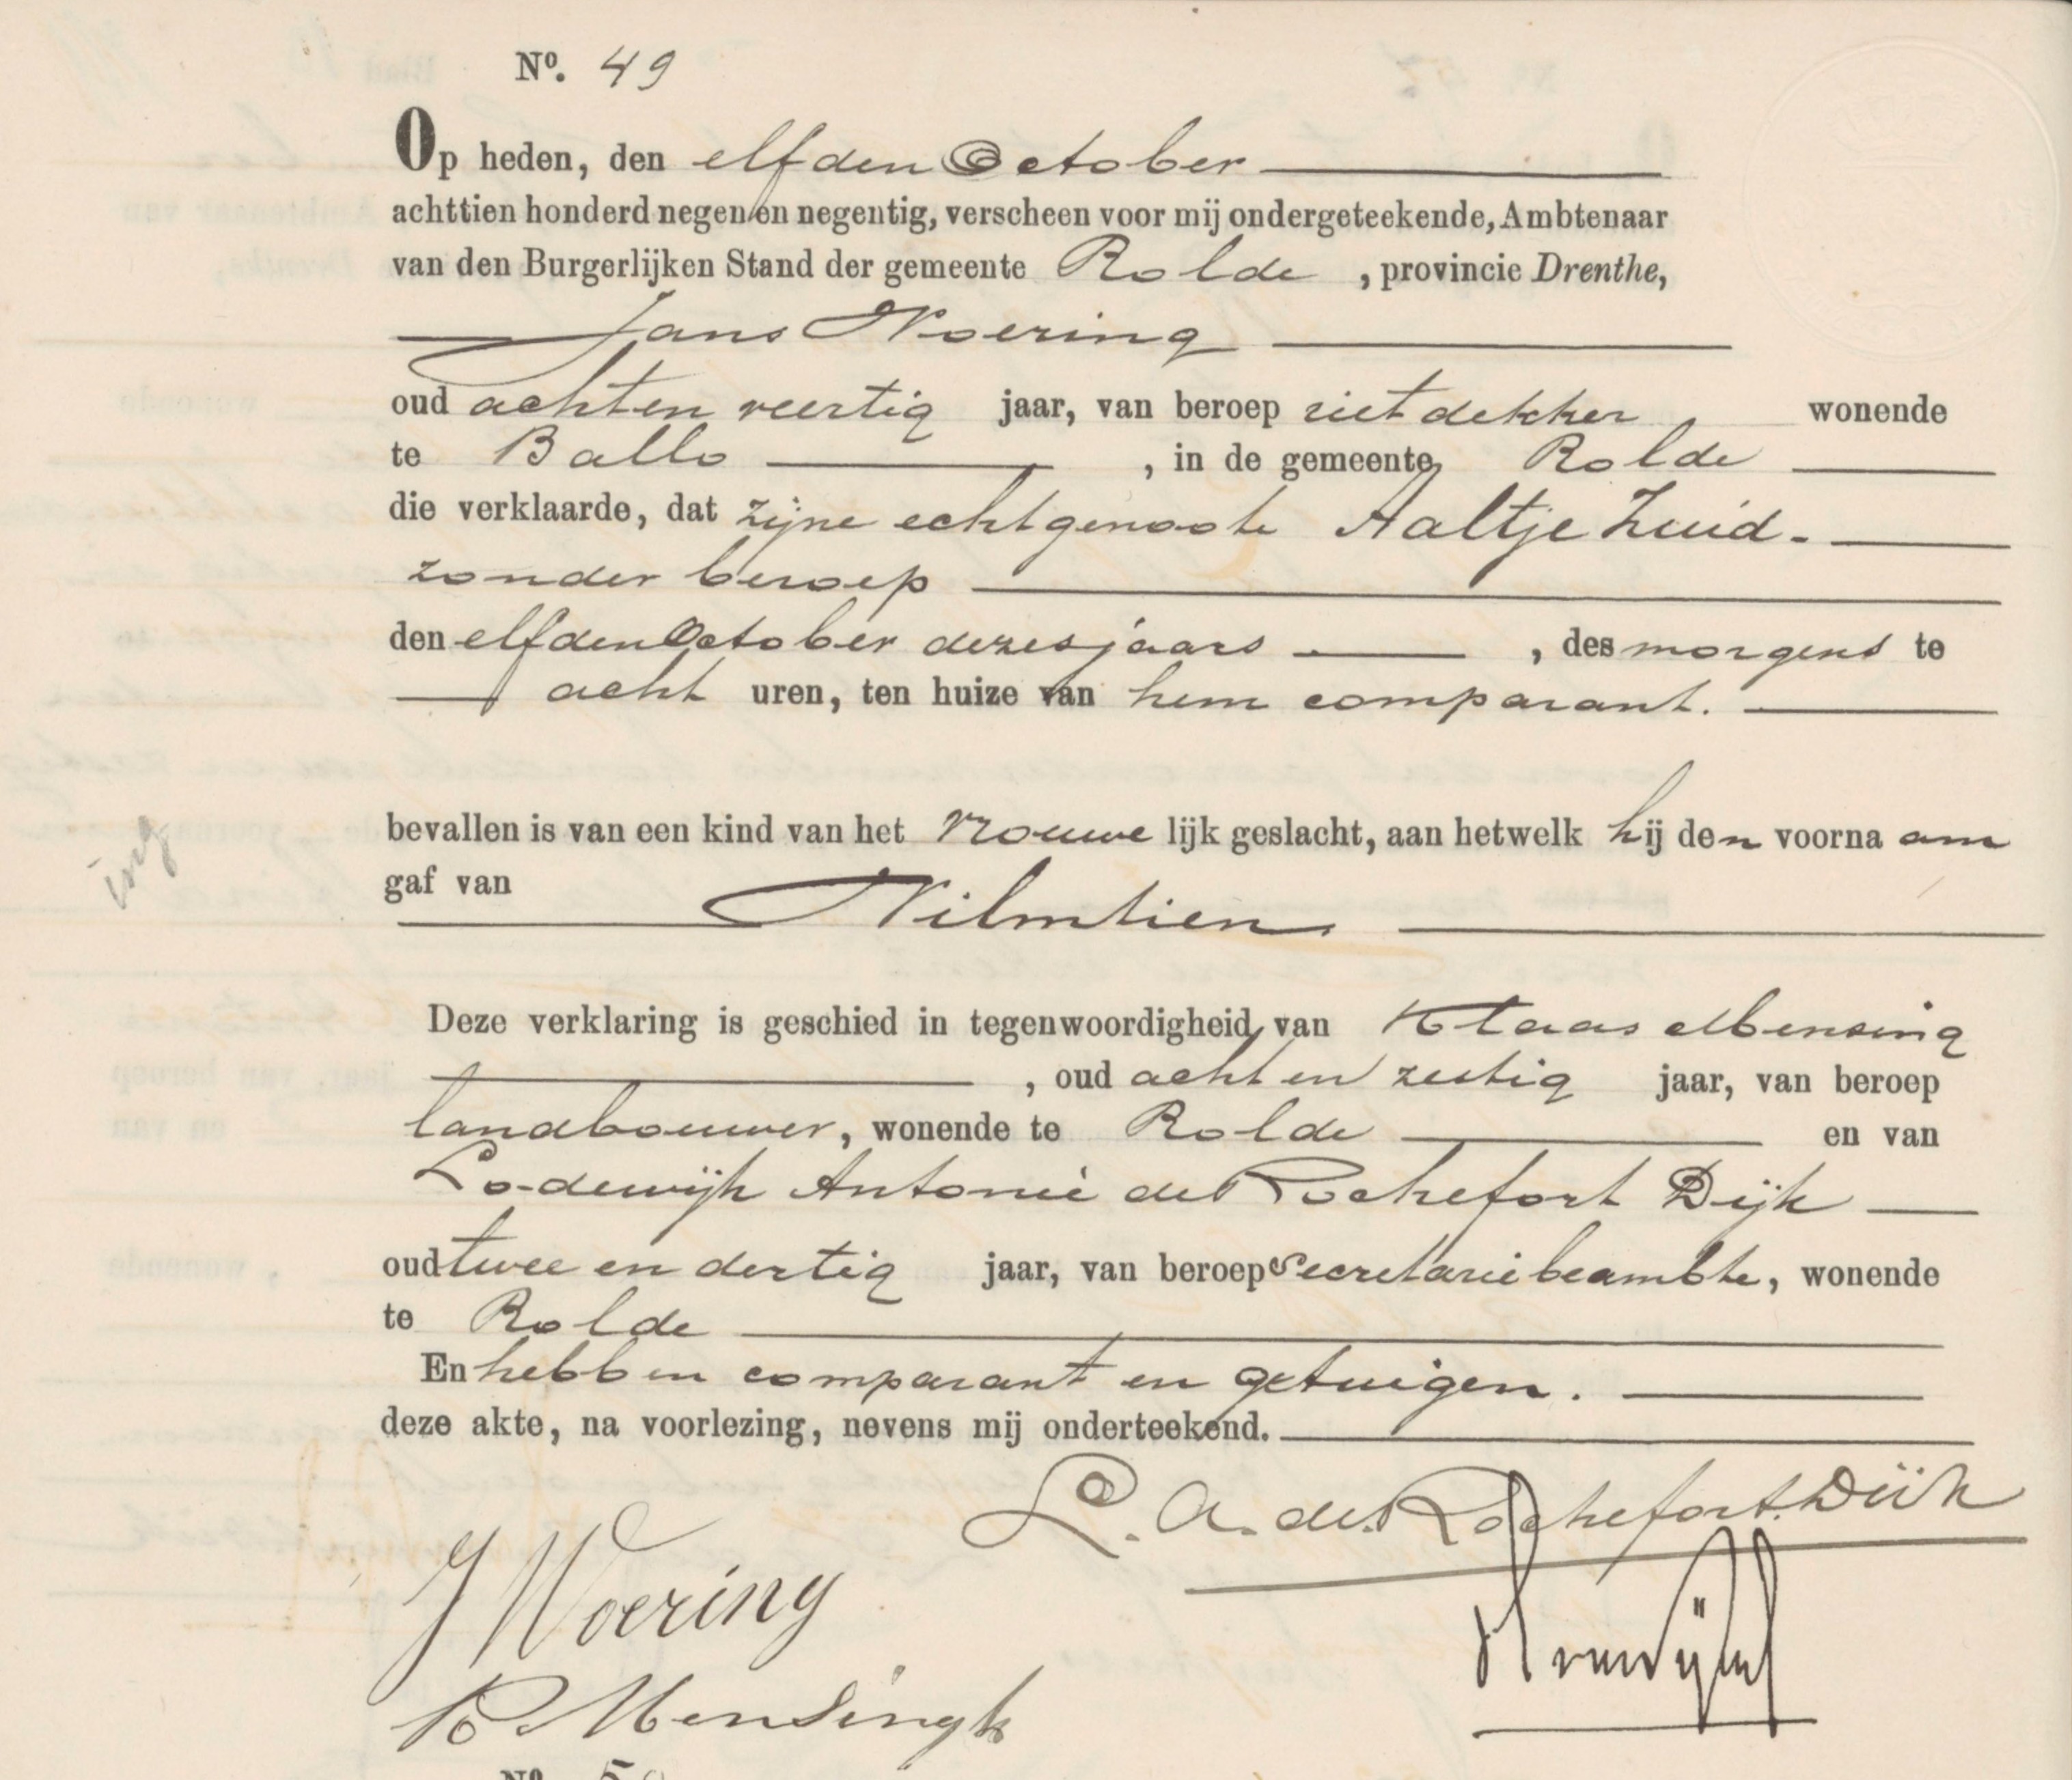 Nº. 49
Op heden, den elfden October
achttien honderd negen en negentig, verscheen voor mij ondergeteekende, Ambtenaar
van den Burgerlijken Stand der gemeente Rolde, provincie Drenthe,
Jans Woering
oud acht en veertig jaar, van beroep rietdekker wonende
te Ballo, in de gemeente Rolde
die verklaarde, dat zijne echtgenoote Aaltje Zuid.
zonder beroep
den elfden October dezes jaars, des morgens te
acht uren, ten huize van hem comparant.
bevallen is van een kind van het vrouwelijk geslacht, aan hetwelk hij den voornaam
gaf van Wilmtien.
ing
Deze verklaring is geschied in tegenwoordigheid van Klaas Mensing
, oud acht en zestig jaar, van beroep
landbouwer, wonende te Rolde en van
Lodewijk Antonie de Rochefort Dijk
oud twee en dertig jaar, van beroep Secretarie beambte, wonende
te Rolde
En hebben comparant en getuigen.
deze akte, na voorlezing, nevens mij onderteekend.
L. A. de Rochefort Dijk
J Woering
K Mensingh
Nº 50